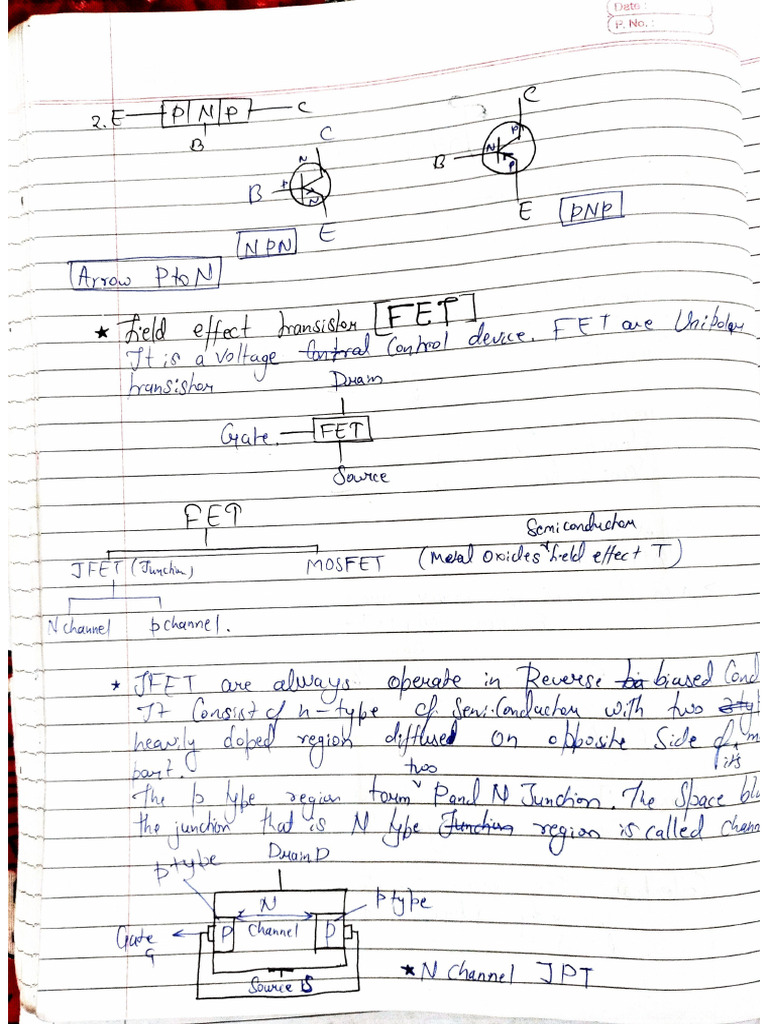 Date :
P. No. :
2. E P N P C
B
C
N
B P
N
E
NPN
C
P
B N
P
E
PNP
Arrow P to N
★ field effect transistor [FET]
It is a voltage Control device. FET are Unipolar
transistor
Drain
Gate FET
Source
FET
Semiconductor
JFET (Junction) MOSFET (Metal Oxides field effect T)
N channel p channel.
★ JFET are always operate in Reverse biased Cond
It Consist of n-type of Semiconductor with two
heavily doped region diffused on opposite Side of its m
part.
two
The p type region form P and N Junction. The Space b
the junction that is N type Junction region is called chann
p type Drain D
N p type
Gate P channel P
G
Source S
★ N channel JPT